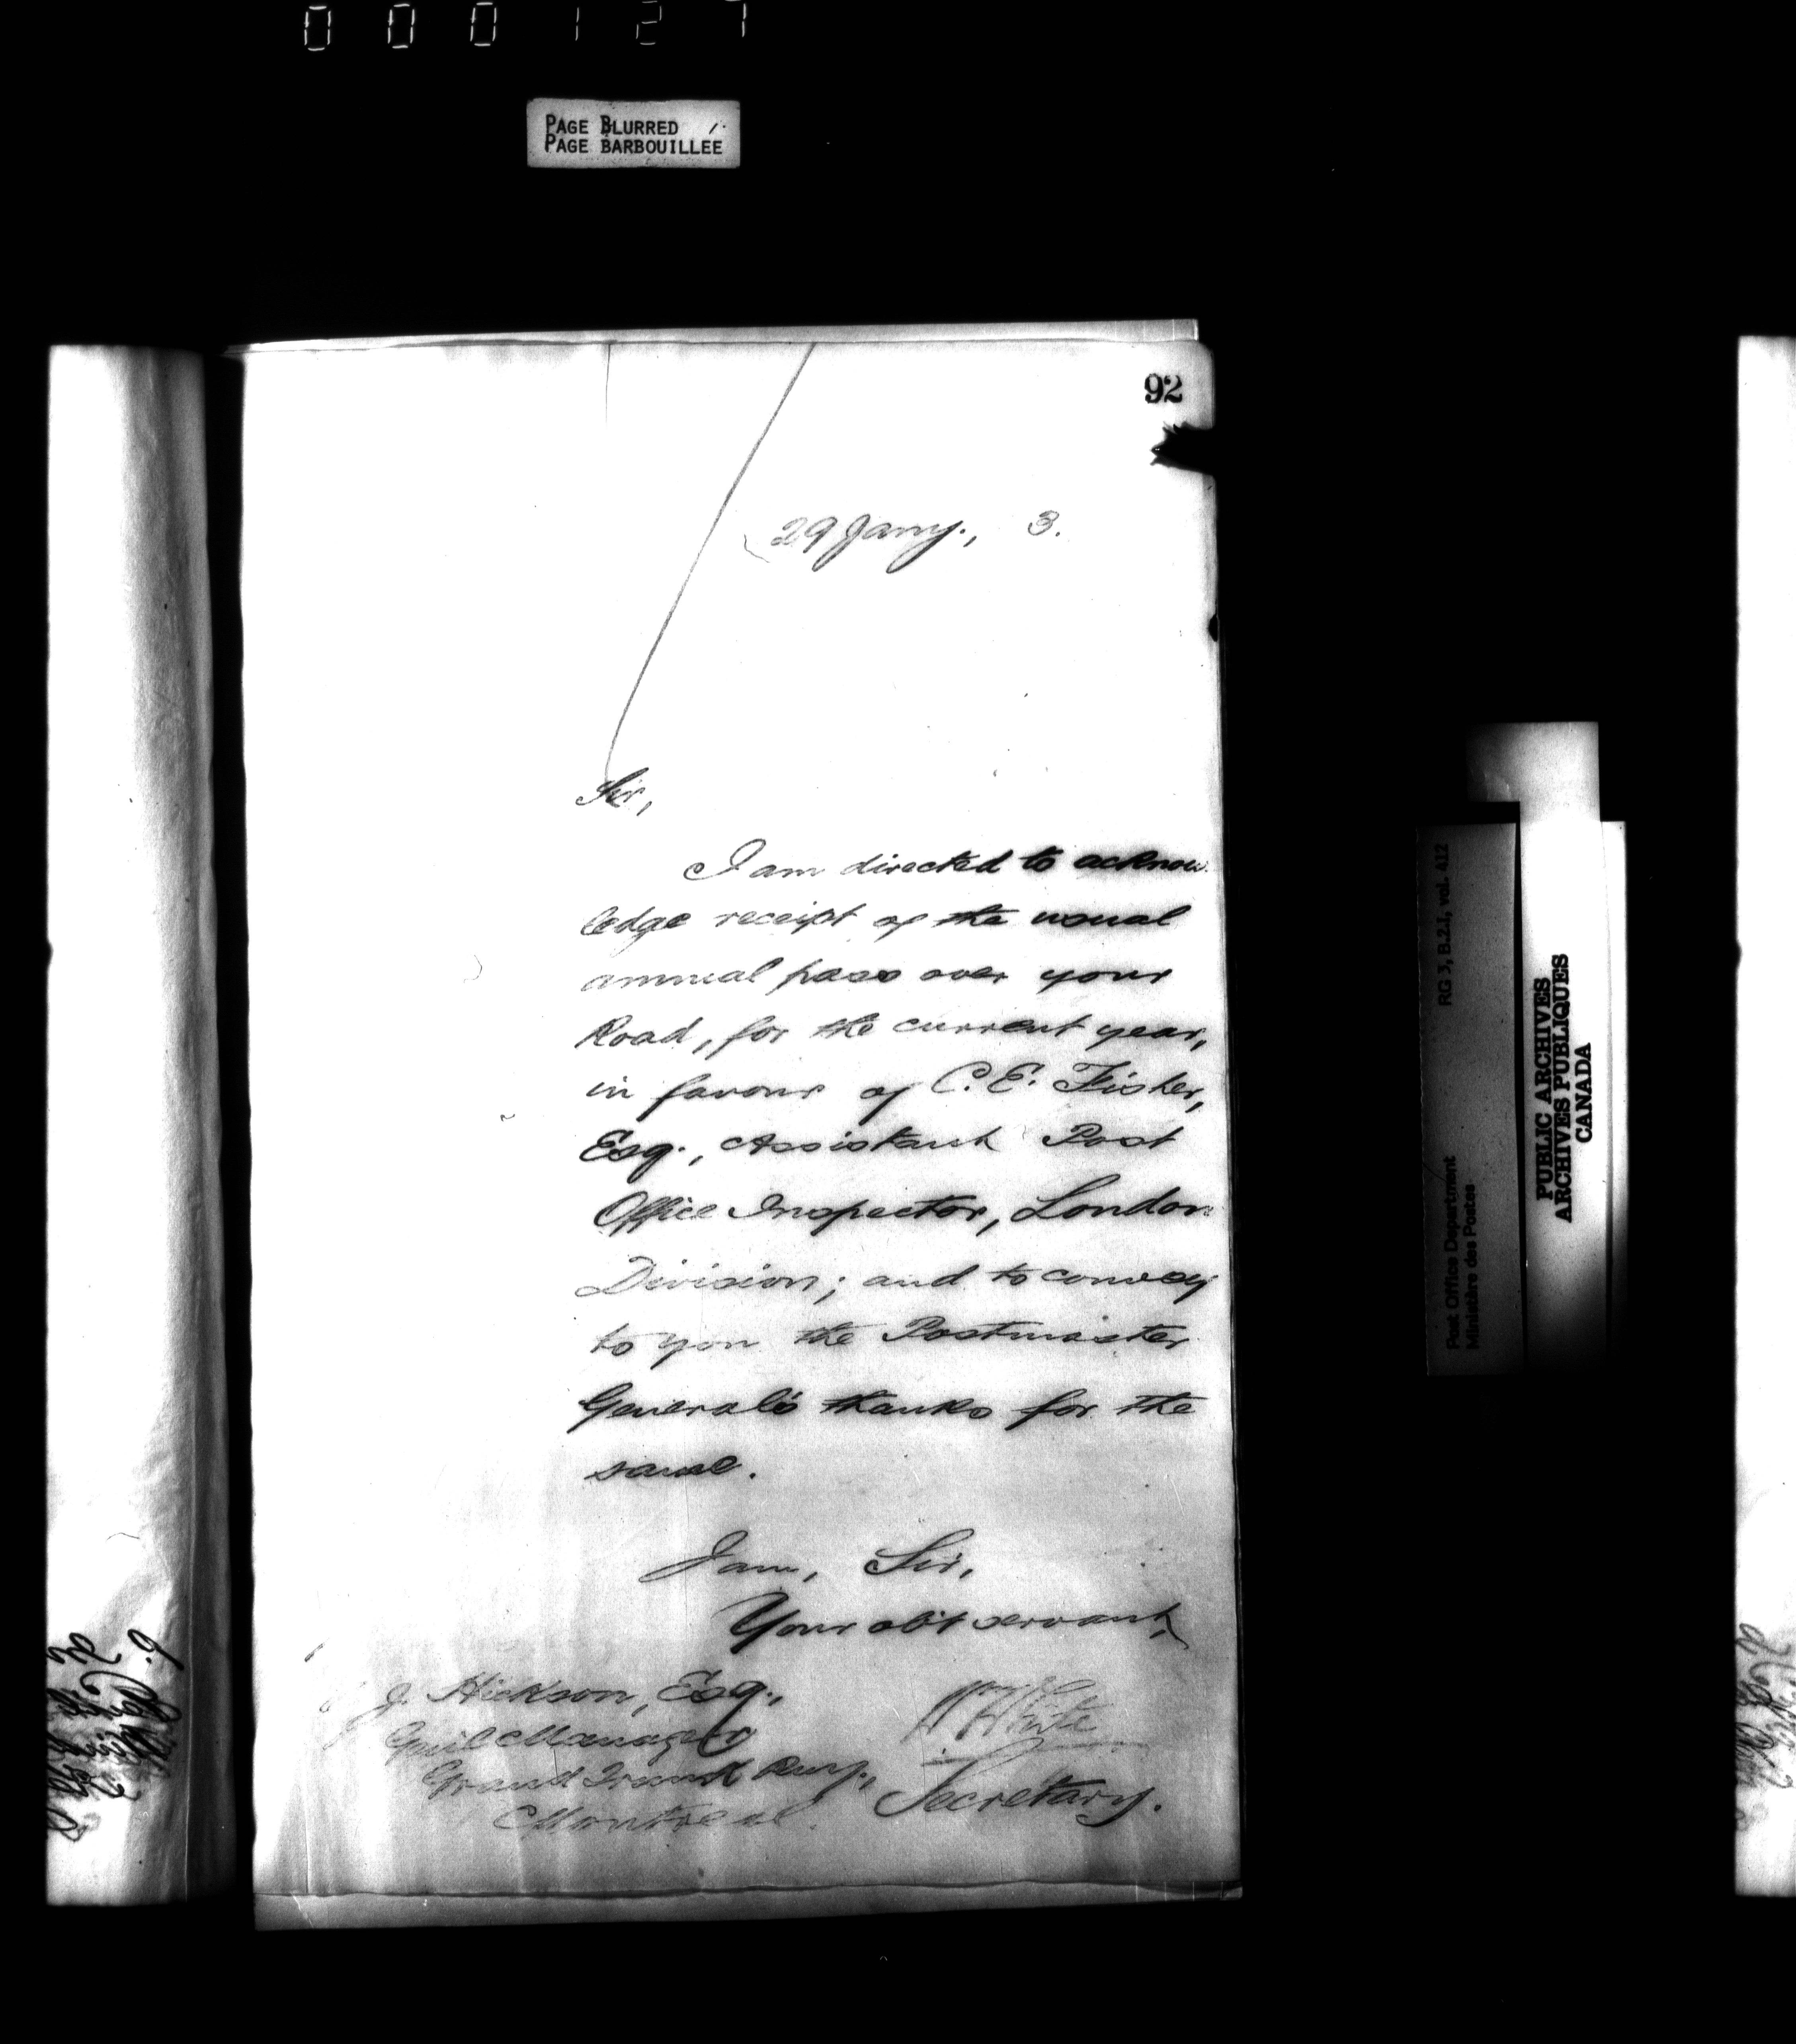 000127
PAGE BLURRED
PAGE BARBOUILLÉE
92
29 Jany., 3.
Sir,
I am directed to acknow
ledge receipt of the usual
annual pass over your
Road, for the current year,
in favour of C. E. Fisher,
Esq., Assistant Post
Office Inspector, London
Division; and to convey
to you the Postmaster
General's thanks for the
same.
I am, Sir,
Your obt servant,
Wm White
Secretary.
J. Hickson, Esq.,
Genl Manager
Grand Trunk Rwy.,
Montreal.
RG 3, B.2.1, vol. 412
Post Office Department
Ministère des Postes
PUBLIC ARCHIVES
ARCHIVES PUBLIQUES
CANADA